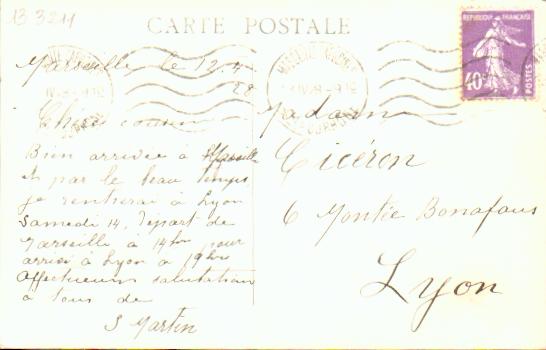 13 3211
CARTE POSTALE
RÉPUBLIQUE FRANÇAISE
POSTES
40c
Marseille le 12.4
28
Chère cousine
Bien arrivée à Marseille
et par le beau temps
je rentrerai à Lyon
Samedi 14, départ de
Marseille à 14hr pour
arrivé à Lyon à 19hrs
Affectueuses salutations
à tous de
S Martin
Madame
Cicéron
6 Montée Bonafous
Lyon